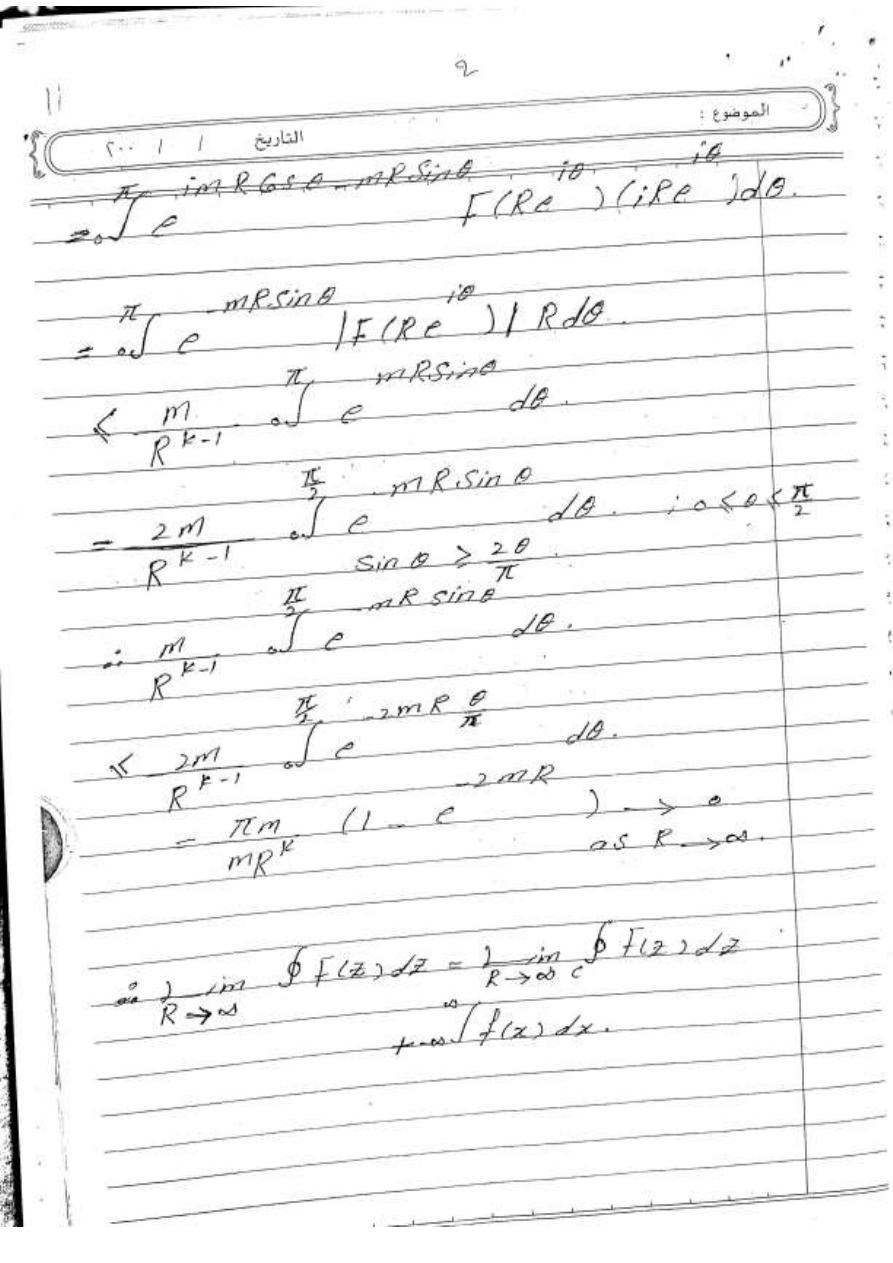 2
11
الموضوع :
التاريخ / / ٢٠٠
= ₀∫^π e^{imR Cos θ - mR Sin θ} F(Re^{iθ})(iRe^{iθ})dθ.
= ₀∫^π e^{-mR sin θ} |F(Re^{iθ})| R dθ.
≤ m/R^{k-1} ₀∫^π e^{mR Sin θ} dθ.
= 2m/R^{k-1} ₀∫^{π/2} e^{-mR Sin θ} dθ. ; 0 ≤ θ ≤ π/2
Sin θ ≥ 2θ/π.
∴ m/R^{k-1} ₀∫^{π/2} e^{-mR sin θ} dθ.
≤ 2m/R^{k-1} ₀∫^{π/2} e^{-2mR θ/π} dθ.
= πm/mR^k (1 - e^{-2mR}) → 0
as R → ∞.
∴ lim_{R→∞} ∮ F(z)dz = lim_{R→∞} ∮_c F(z)dz
+ ₋∞∫^∞ f(x) dx.